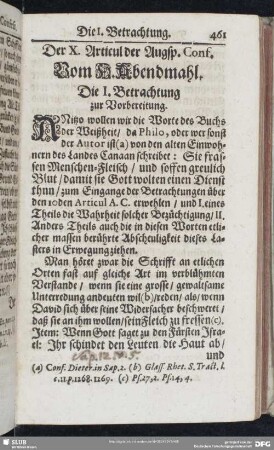 Die I. Betrachtung. 461
Der X. Articul der Augsp. Conf.
Vom H. Abendmahl.
Die I. Betrachtung
zur Vorbereitung.
ANitzo wollen wir die Worte des Buchs
der Weißheit / da Philo, oder wer sonst
der Autor ist (a) von den alten Einwoh-
nern des Landes Canaan schreibet: Sie fras-
sen Menschen-Fleisch / und soffen greulich
Blut / damit sie Gott wolten einen Dienst
thun / zum Eingange der Betrachtungen über
den 10den Articul A. C. erwehlen / und I. eines
Theils die Wahrheit solcher Bezüchtigung / II.
Anders Theils auch die in diesen Worten etli-
cher massen berührte Abscheuligkeit dieses La-
sters in Erwegung ziehen.
Man höret zwar die Schrifft an etlichen
Orten fast auf gleiche Art im verblühmten
Verstande / wenn sie eine grosse / gewaltsame
Unterredung andeuten wil (b) reden / als / wenn
David sich über seine Widersacher beschweret /
daß sie an ihm wollen / sein Fleisch zu fressen (c).
Item: Wenn Gott saget zu den Fürsten Isra-
el: Ihr schindet den Leuten die Haut ab /
und
Sap. 12. v. 5.
(a) Conf. Dieter. in Sap. 1. (b) Glass. Rhet. S. Tract. I.
c. 11. p. 1268. 1269. (c) Ps. 27, 2. Ps. 14, 4.
SLUB